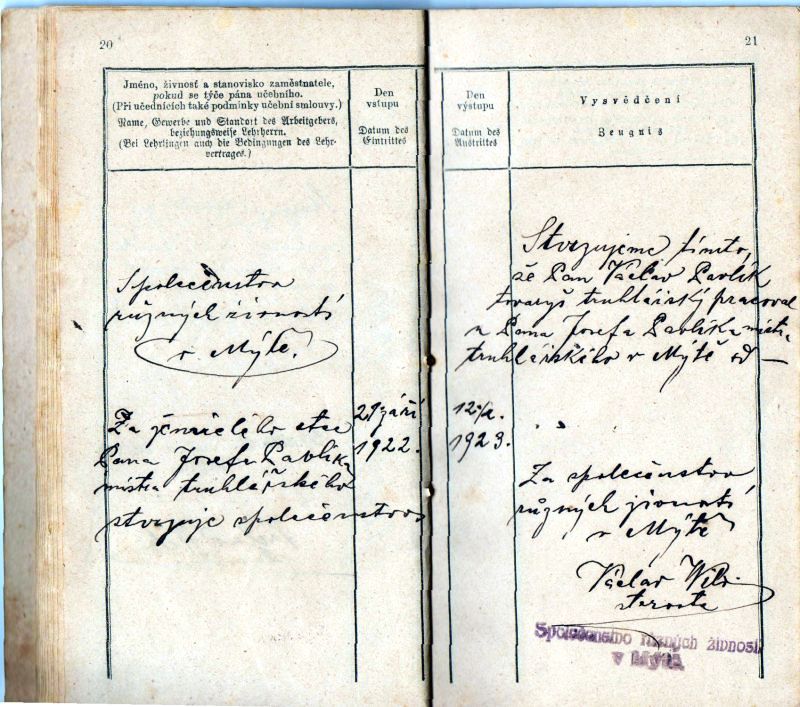 20
Jméno, živnosť a stanovisko zaměstnatele,
pokud se týče pána učebního.
(Při učednících také podmínky učební smlouvy.)
Name, Gewerbe und Standort des Arbeitgebers,
beziehungsweise Lehrherrn.
(Bei Lehrlingen auch die Bedingungen des Lehr-
vertrages.)
Den
vstupu
Datum des
Eintrittes
Společenstvo
různých živností
v Mýtě.
Za otce
Pana Josefa Pavlíka
mistra truhlářského
stvrzuje společenstvo
29 září
1922.
21
Den
výstupu
Datum des
Austrittes
Vysvědčení
Zeugnis
Stvrzujeme tímto,
že Pan Václav Pavlík
tovaryš truhlářský pracoval
u Pana Josefa Pavlíka mistra
truhlářského v Mýtě od —
1923.
Za společenstvo
různých živností
v Mýtě
Václav
starosta
Společenstvo různých živností
v Mýtě